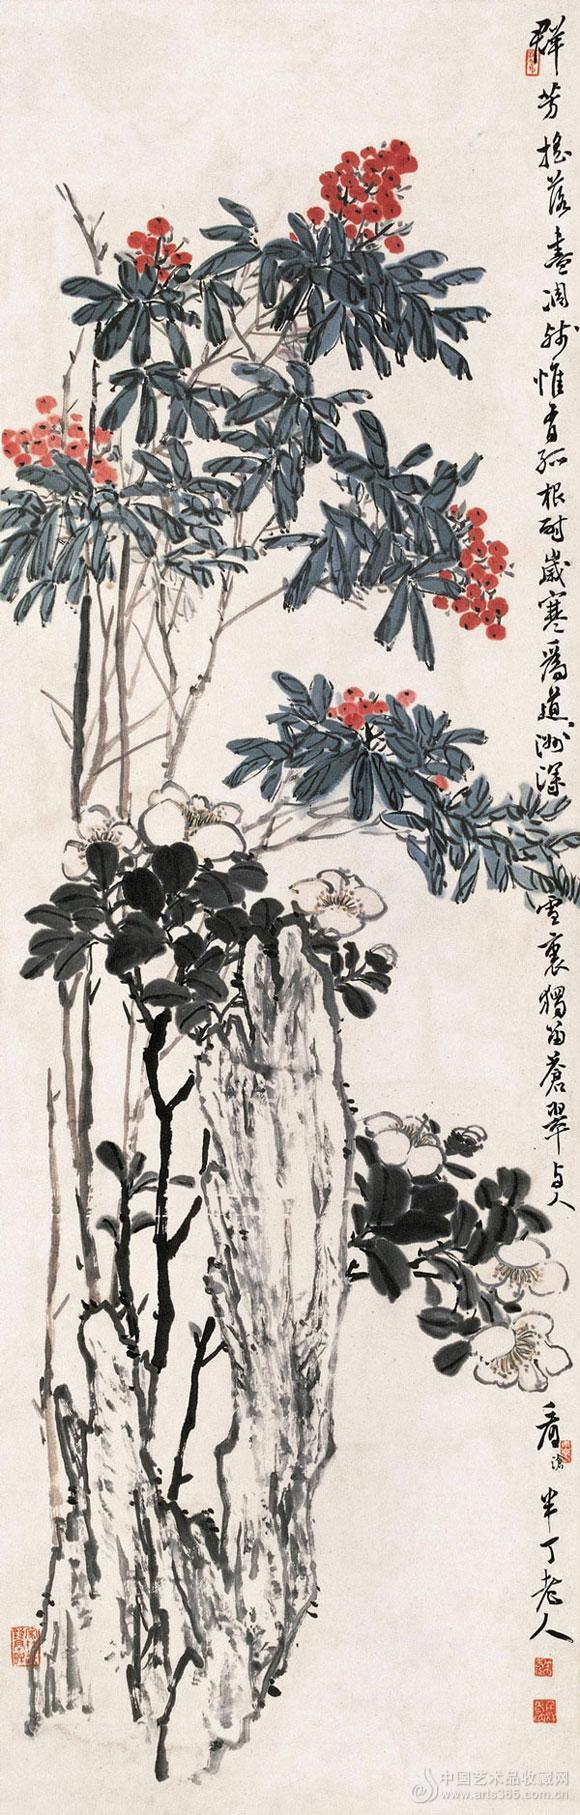 群芳搖落盡凋殘惟有孤根耐歲寒為道洲深雪裏獨留蒼翠与人看滄半丁老人
中国艺术品收藏网
www.arts365.com.cn